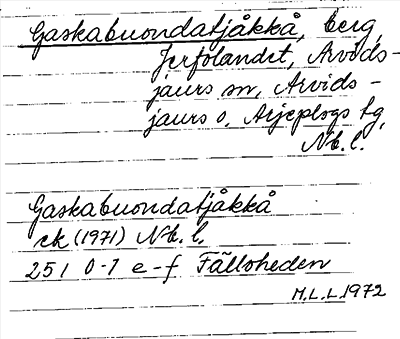 Gaskabuondatjåkkå, berg,
Jerfolandet, Arvids-
jaurs sn, Arvids-
jaurs o. Arjeplogs tg,
Nb. l.
Gaskabuondatjåkkå
ek (1971) Nb. l.
25 I 0-1 e-f Fälloheden
M.L.L. 1972